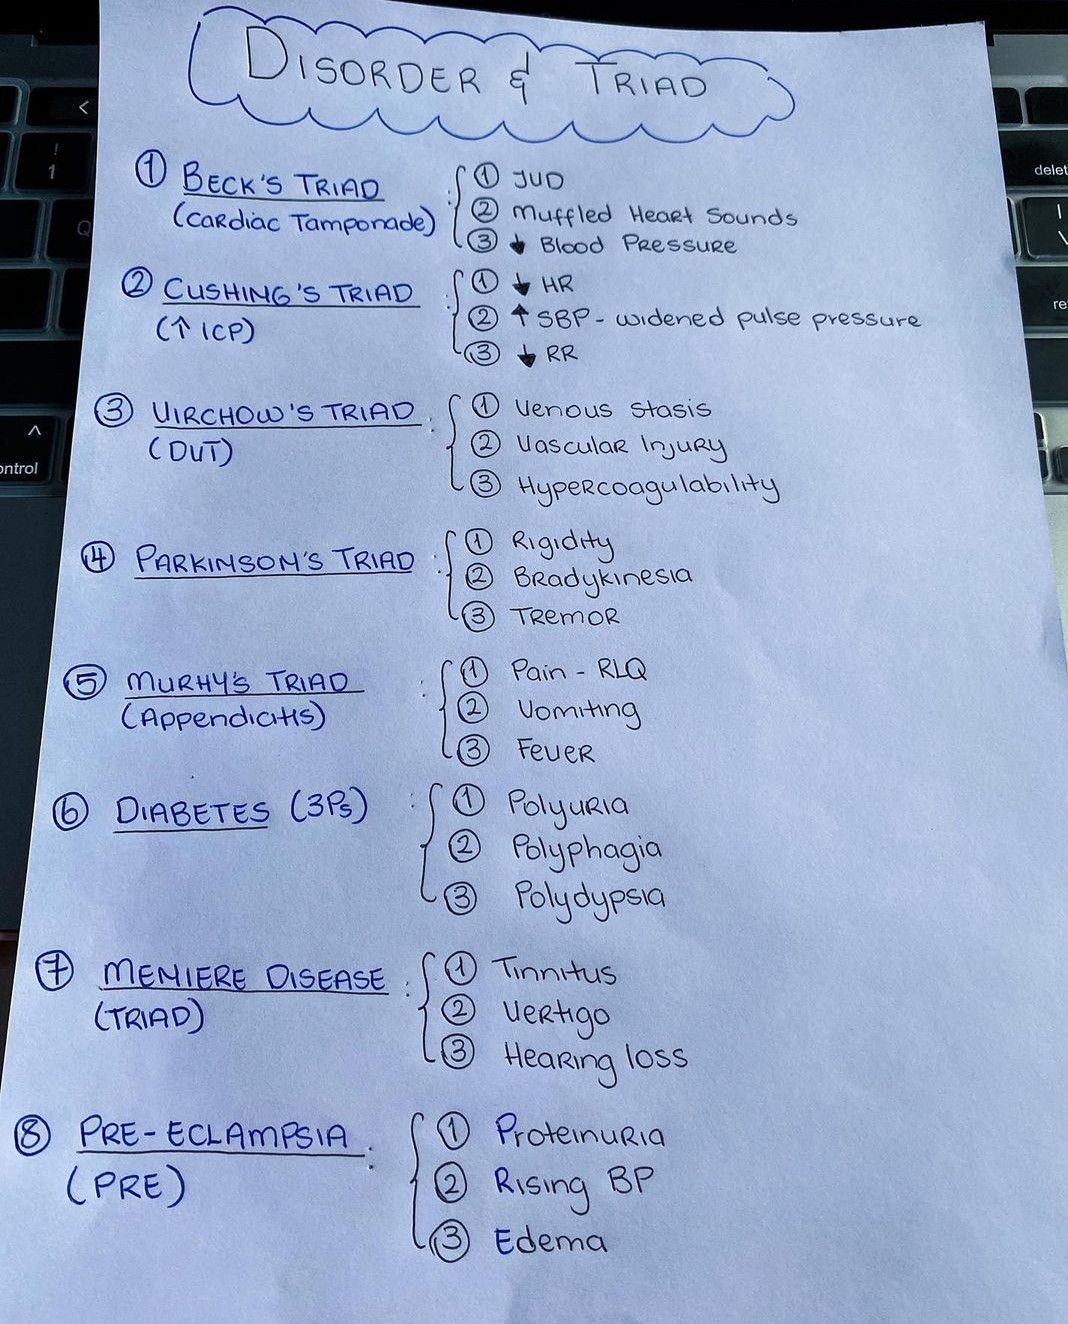 DISORDER & TRIAD
① BECK'S TRIAD
(Cardiac Tamponade)
① JVD
② Muffled Heart Sounds
③ ↓ Blood Pressure
② CUSHING'S TRIAD
(↑ ICP)
① ↓ HR
② ↑ SBP - widened pulse pressure
③ ↓ RR
③ VIRCHOW'S TRIAD :
(DVT)
① Venous stasis
② Vascular Injury
③ Hypercoagulability
④ PARKINSON'S TRIAD :
① Rigidity
② Bradykinesia
③ Tremor
⑤ MURHY'S TRIAD :
(Appendicitis)
① Pain - RLQ
② Vomiting
③ Fever
⑥ DIABETES (3Ps) :
① Polyuria
② Polyphagia
③ Polydypsia
⑦ MENIERE DISEASE :
(TRIAD)
① Tinnitus
② Vertigo
③ Hearing loss
⑧ PRE-ECLAMPSIA :
(PRE)
① Proteinuria
② Rising BP
③ Edema
<
!
1
Q
^
ontrol
delet
|
\
re